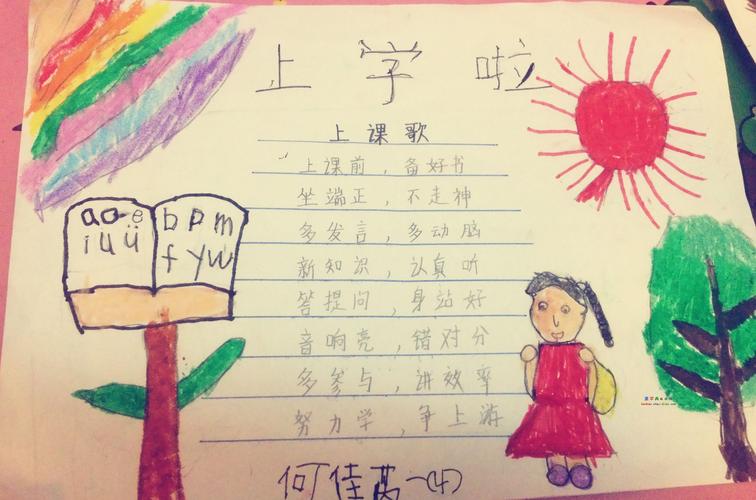 上学啦
上课歌
上课前，备好书
坐端正，不走神
多发言，多动脑
新知识，认真听
答提问，身站好
音响亮，错对分
多参与，讲效率
努力学，争上游
a o e
i u ü
b p m
f y w
何佳 一(4)